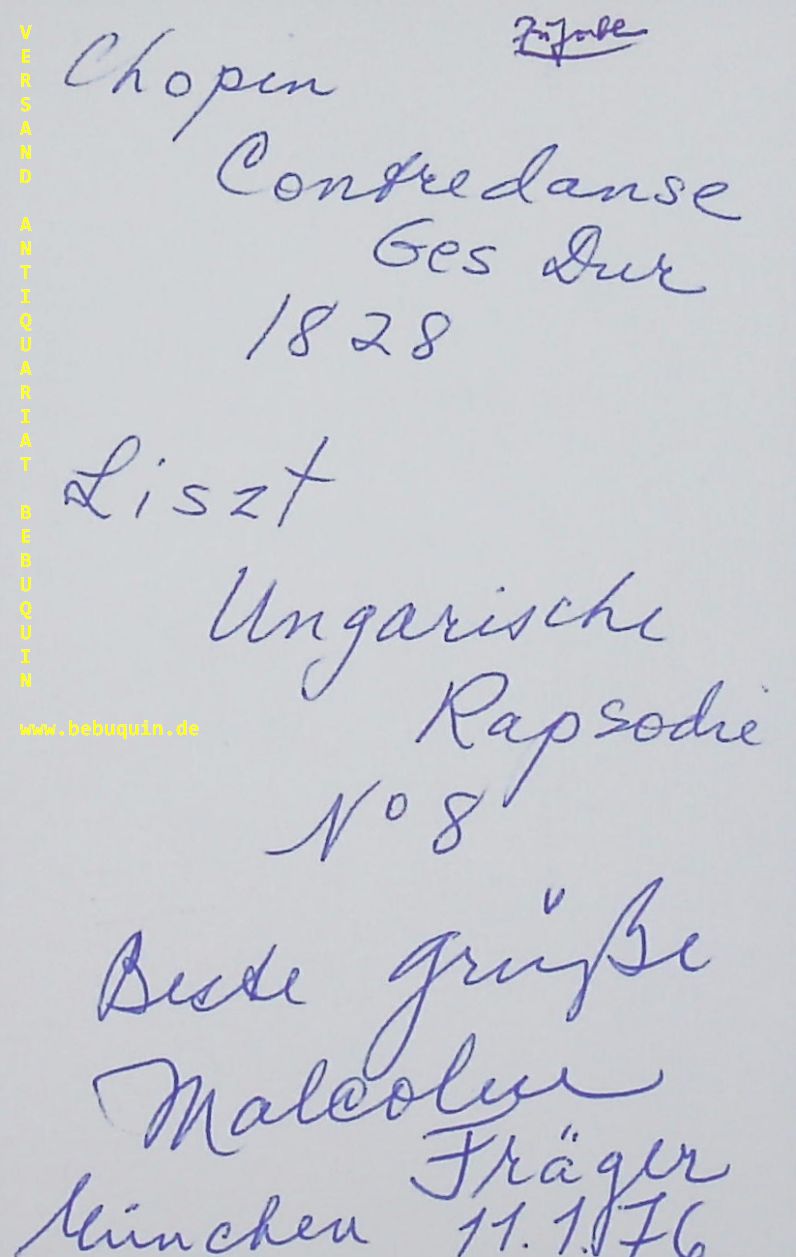 Zugabe
Chopin
Contredanse
Ges Dur
1828
Liszt
Ungarische
Rapsodie
Nº 8
Beste Grüße
Malcolm
Fräger
München 11.1.76
VERSAND ANTIQUARIAT BEBUQUIN
www.bebuquin.de